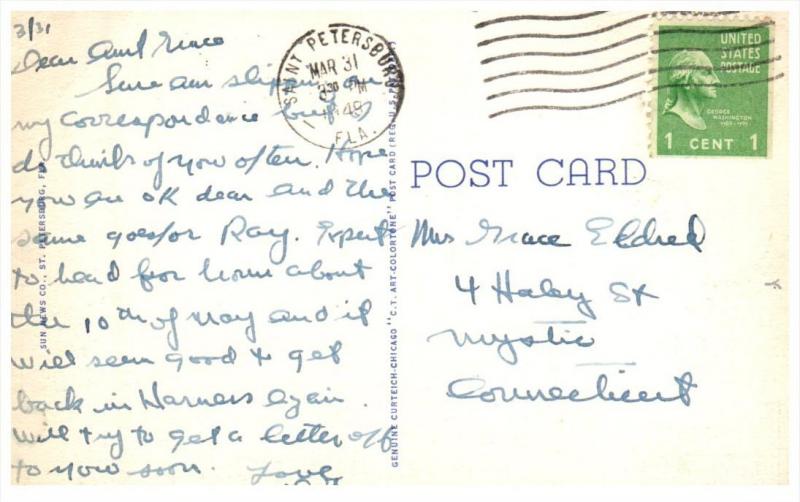 3/31
Dear Aunt Grace
Sure am slipping on
my correspondence but I
do think of you often. Hope
you are OK dear and the
same goes for Ray. Expect
to head for home about
the 10th of May and it
will seem good to get
back in Harness again.
Will try to get a letter off
to you soon. Love
SUN NEWS CO., ST. PETERSBURG, FLA.
SAINT PETERSBURG
MAR 31
3 30 PM
1948
FLA.
GENUINE CURTEICH-CHICAGO "C.T. ART-COLORTONE" POST CARD (REG. U.S.
UNITED
STATES
POSTAGE
GEORGE
WASHINGTON
1 CENT 1
POST CARD
Mrs Grace Eldred
4 Haley St
Mystic
Connecticut